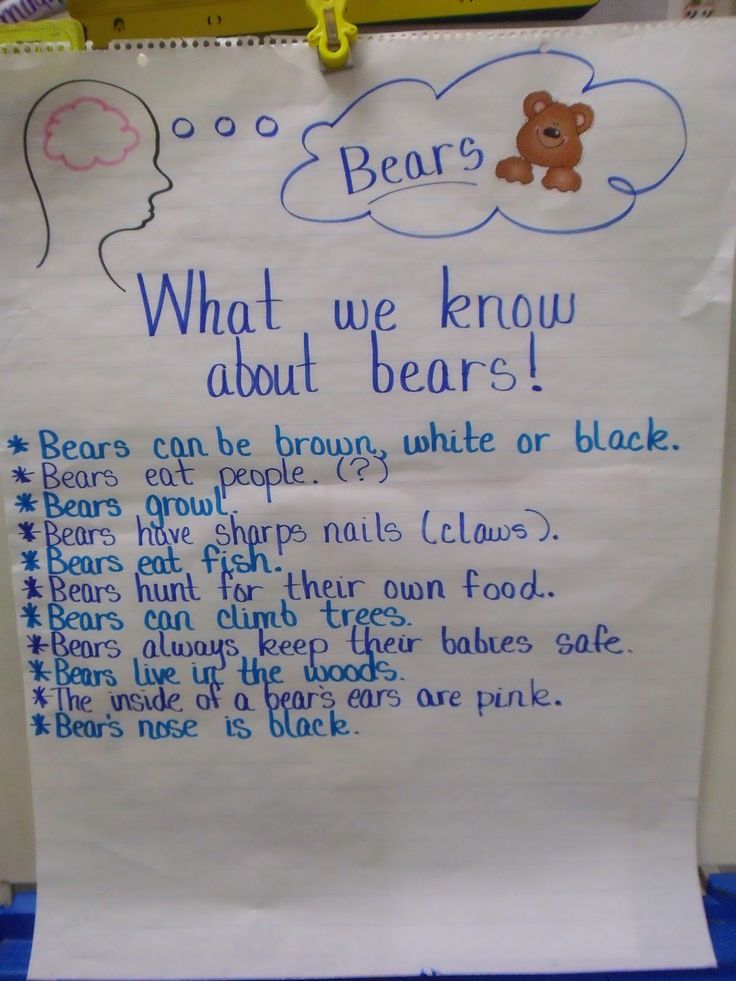 Bears
What we know
about bears!
* Bears can be brown, white or black.
* Bears eat people. (?)
* Bears growl.
* Bears have sharps nails (claws).
* Bears eat fish.
* Bears hunt for their own food.
* Bears can climb trees.
* Bears always keep their babies safe.
* Bears live in the woods.
* The inside of a bear's ears are pink.
* Bear's nose is black.